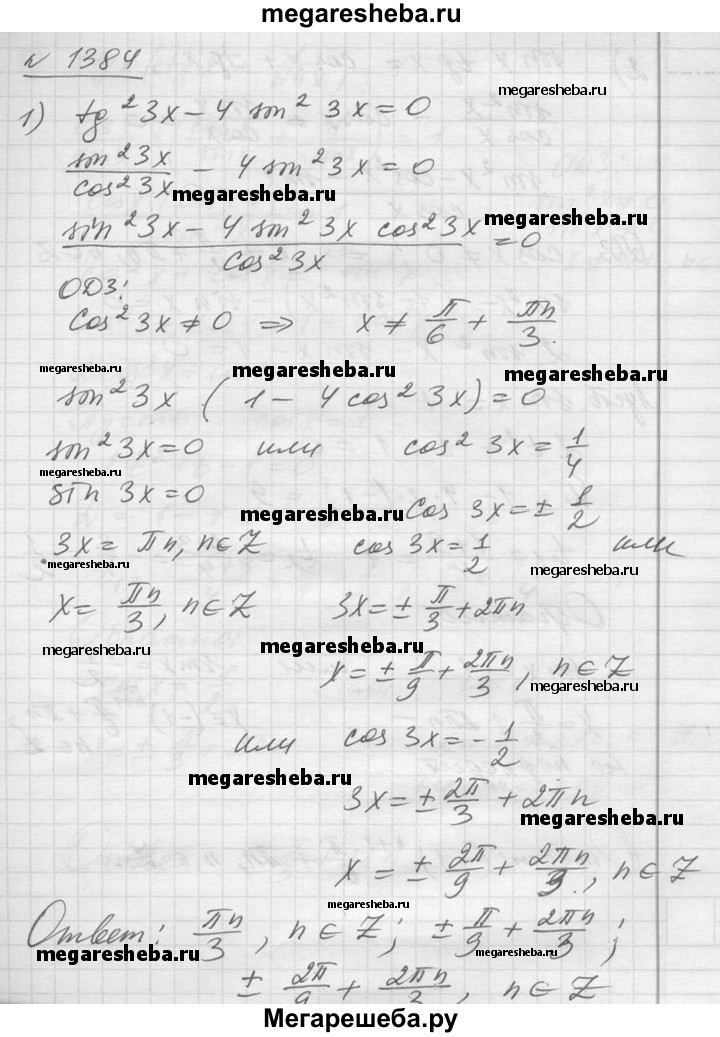 megaresheba.ru
№ 1384
megaresheba.ru
1) tg²3x − 4 sin²3x = 0
sin²3x/cos²3x − 4 sin²3x = 0
megaresheba.ru
megaresheba.ru
(sin²3x − 4 sin²3x cos²3x)/cos²3x = 0
ОДЗ:
cos²3x ≠ 0 ⇒ x ≠ π/6 + πn/3.
megaresheba.ru megaresheba.ru megaresheba.ru
sin²3x (1 − 4cos²3x) = 0
sin²3x = 0 или cos²3x = 1/4
megaresheba.ru
sin 3x = 0 cos 3x = ± 1/2
megaresheba.ru megaresheba.ru
3x = πn, n∈Z cos 3x = 1/2 или
megaresheba.ru megaresheba.ru megaresheba.ru
x = πn/3, n∈Z 3x = ± π/3 + 2πn
megaresheba.ru megaresheba.ru
x = ± π/9 + 2πn/3, n∈Z
megaresheba.ru
или cos 3x = − 1/2
megaresheba.ru
3x = ± 2π/3 + 2πn
megaresheba.ru
x = ± 2π/9 + 2πn/3., n∈Z
Ответ: πn/3, n∈Z; ± π/9 + 2πn/3;
megaresheba.ru megaresheba.ru
± 2π/9 + 2πn/3, n∈Z
Мегарешеба.ру